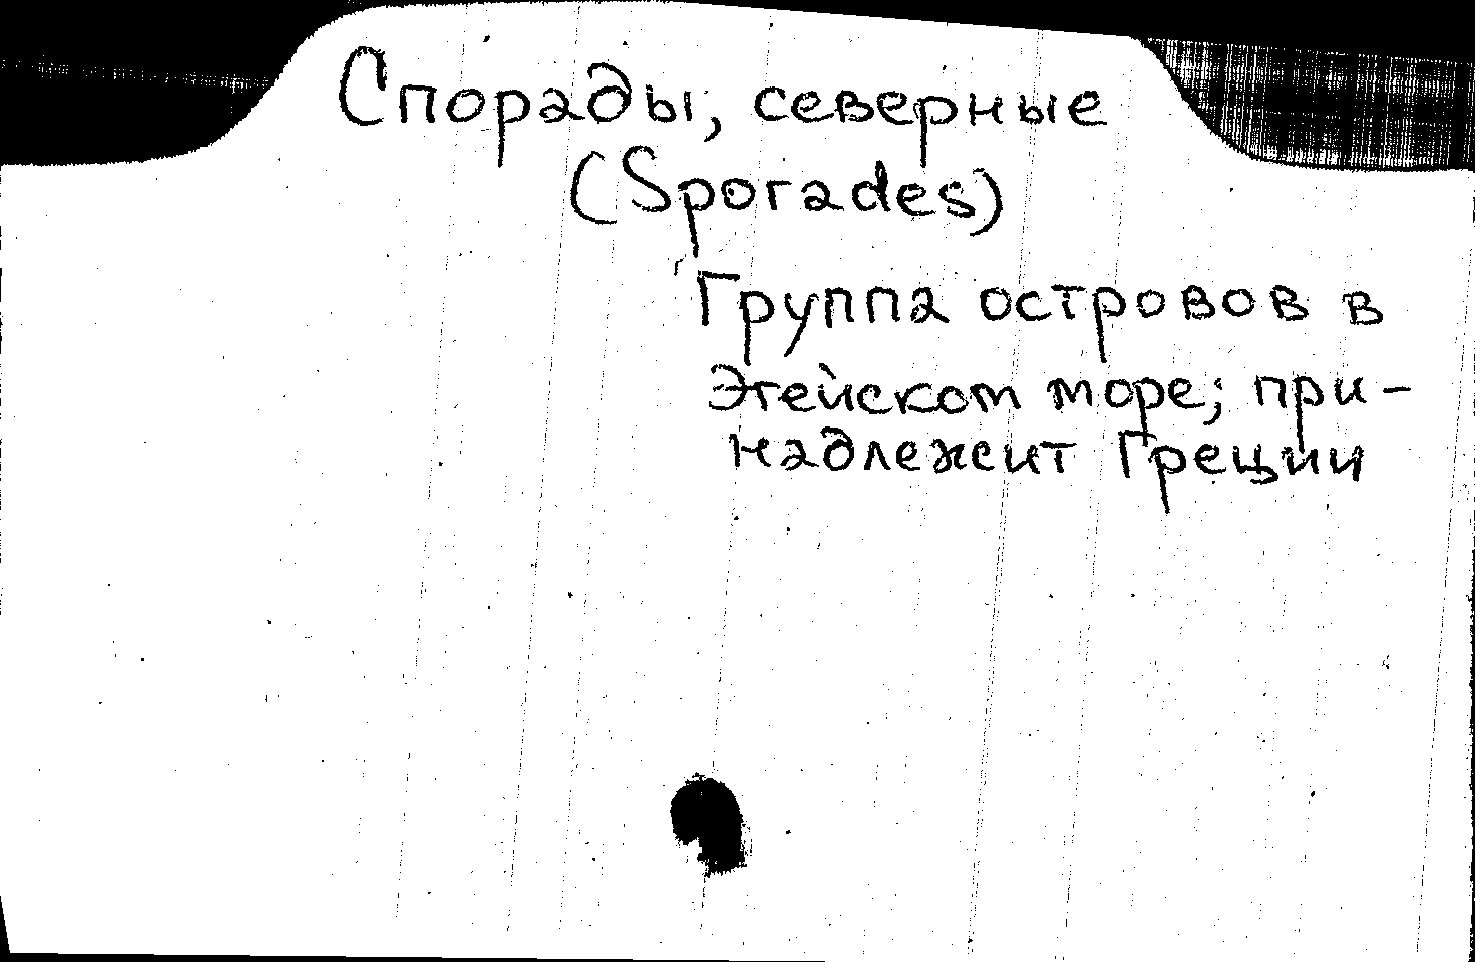 Спорады, северные
(Sporades)
Группа островов в
Эгейском море; при-
надлежит Греции